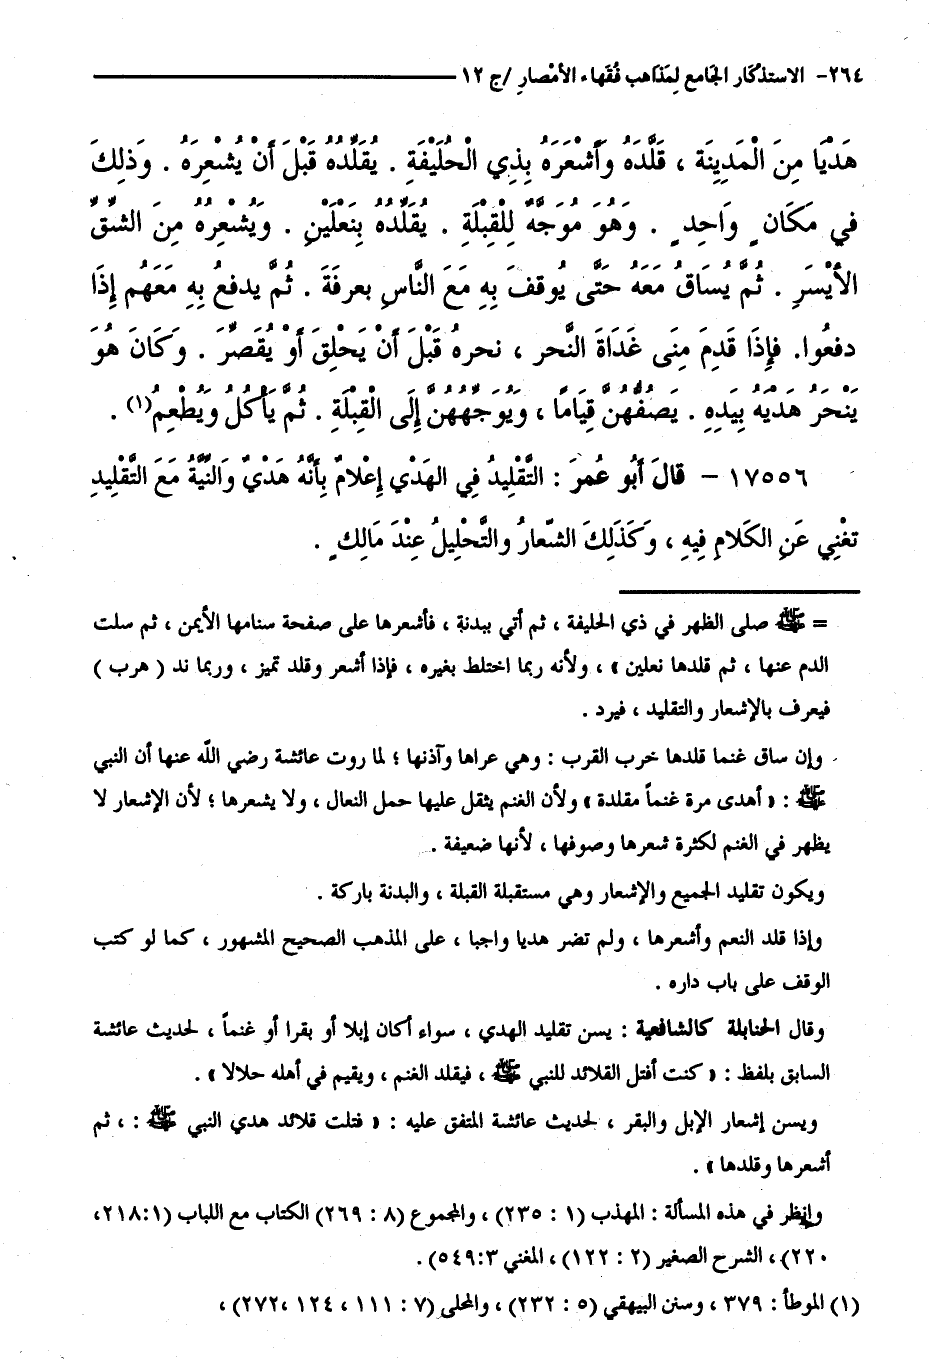 ٢٦٤- الاستذكار الجامع لِمَذاهب فُقَهاء الأمْصارِ /ج ١٢
هَدْيًا مِنَ الْمَدِينَةِ ، قَلَّدَهُ وَأَشْعَرَهُ بِذِي الْحُلَيْفَةِ . يُقَلِّدُهُ قَبْلَ أَنْ يُشْعِرَهُ . وَذلِكَ
في مَكَانٍ وَاحِدٍ . وَهُوَ مُوَجَّهٌ لِلْقِبْلَةِ . يُقَلِّدُهُ بِنَعْلَيْنِ . وَيُشْعِرُهُ مِنَ الشِّقِّ
الأيْسَرِ . ثُمَّ يُسَاقُ مَعَهُ حَتَّى يُوقفَ بِهِ مَعَ النَّاسِ بعرفَةَ . ثُمَّ يدفعُ بِهِ مَعَهم إِذَا
دفعُوا. فإِذَا قَدِمَ مِنَى غَدَاةَ النَّحر ، نحرهُ قَبْلَ أَنْ يَحلِقَ أَو يُقَصِّرَ . وكَانَ هُوَ
يَنْحَرُ هَدْيَهُ بِيَدِهِ . يَصُفُّهُنَّ قِيَامًا ، وَيُوَجِّهُهُنَّ إِلَى الْقِبْلَةِ . ثُمَّ يَأْكُلُ وَيُطْعِمُ(١) .
١٧٥٥٦ – قالَ أَبُو عُمرَ : التَّقْلِيدُ فِي الهَدْيِ إِعْلامٌ بِأَنَّهُ هَدْيٌ وَالنِّيَّةُ مَعَ التَّقْلِيدِ
تغْنِي عَنِ الكَلامِ فِيهِ ، وَكَذَلِكَ الشّعارُ والتَّحْلِيلُ عِنْدَ مَالِكٍ .
= ﷺ صلى الظهر في ذي الحليفة ، ثم أتي ببدنة ، فأشعرها على صفحة سنامها الأيمن ، ثم سلت
الدم عنها ، ثم قلدها نعلين » ، ولأنه ربما اختلط بغيره ، فإذا أشعر وقلد تميز ، وربما ند ( هرب )
فيعرف بالإشعار والتقليد ، فيرد .
وإن ساق غنما قلدها خرب القرب : وهي عراها وآذنها ؛ لما روت عائشة رضي الله عنها أن النبي
ﷺ : « أهدى مرة غنماً مقلدة » ولأن الغنم يثقل عليها حمل النعال ، ولا يشعرها ؛ لأن الإشعار لا
يظهر في الغنم لكثرة شعرها وصوفها ، لأنها ضعيفة .
ويكون تقليد الجميع والإشعار وهي مستقبلة القبلة ، والبدنة باركة .
وإذا قلد النعم وأشعرها ، ولم تضر هديا واجبا ، على المذهب الصحيح المشهور ، كما لو كتب
الوقف على باب داره .
وقال الحنابلة كالشافعية : يسن تقليد الهدي ، سواء أكان إبلا أو بقرا أو غنماً ، لحديث عائشة
السابق بلفظ : « كنت أفتل القلائد للنبي ﷺ ، فيقلد الغنم ، ويقيم في أهله حلالا » .
ويسن إشعار الإبل والبقر ، لحديث عائشة المتفق عليه : « فتلت قلائد هدي النبي ﷺ : ، ثم
أشعرها وقلدها » .
وانظر في هذه المسألة : المهذب (١ : ٢٣٥) ، والمجموع (٨ : ٢٦٩) الكتاب مع اللباب (٢١٨:١،
٢٢٠)، الشرح الصغير (٢ : ١٢٢) ، المغني ٥٤٩:٣) .
(١) الموطأ : ٣٧٩ ، وسنن البيهقي (٥ : ٢٣٢) ، والمحلى (٧ : ١١١ ، ١٢٤ ،٢٧٢) ،